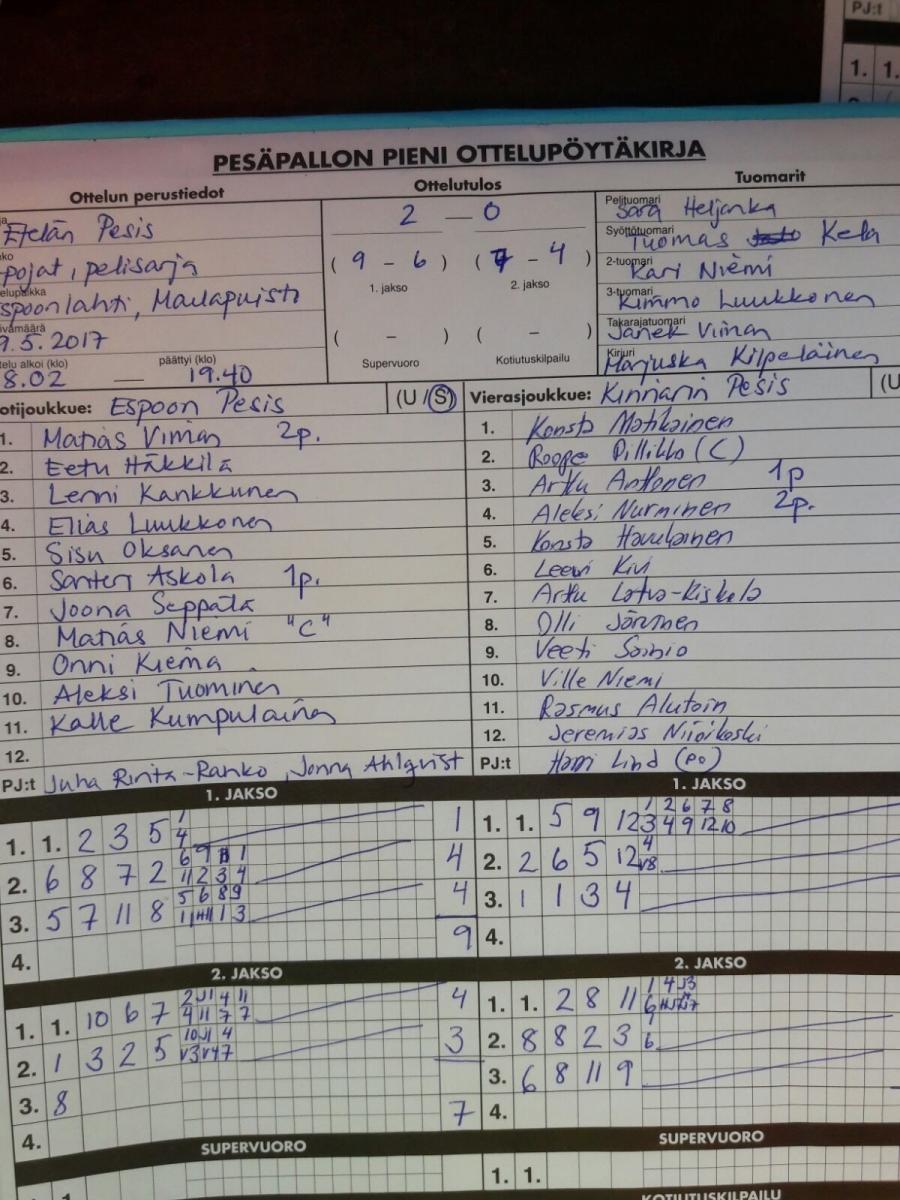 PJ:t
1. 1.
PESÄPALLON PIENI OTTELUPÖYTÄKIRJA
Ottelun perustiedot
Ottelutulos
Tuomarit
Etelän Pesis
pojat, pelisarja
spoonlahti, Maulapuisto
9.5.2017
telu alkoi (klo) päättyi (klo)
8.02 — 19.40
2 — 0
( 9 - 6 ) ( 7 - 4 )
1. jakso 2. jakso
( - ) ( - )
Supervuoro Kotiutuskilpailu
Pelituomari
Sara Heljanka
Syöttötuomari
Tuomas Kela
2-tuomari
Kari Niemi
3-tuomari
Kimmo Luukkonen
Takarajatuomari
Janek Viman
Kirjuri
Marjuska Kilpeläinen
otijoukkue: Espoon Pesis (U / S)
1. Matias Viman 2p.
2. Eetu Häkkilä
3. Lenni Kankkunen
4. Elias Luukkonen
5. Sisu Oksanen
6. Santeri Askola 1p.
7. Joona Seppälä
8. Matias Niemi "C"
9. Onni Kiema
10. Aleksi Tuominen
11. Kalle Kumpulainen
12.
PJ:t Juha Rinta-Ranko, Jonna Ahlqvist
Vierasjoukkue: Kinnarin Pesis (U
1. Konsta Matikainen
2. Roope Pillikko (C)
3. Arttu Anttonen 1p
4. Aleksi Nurminen 2p.
5. Konsta Haukainen
6. Leevi Kivi
7. Arttu Latva-Kiskola
8. Olli Järvinen
9. Veeti Sainio
10. Ville Niemi
11. Rasmus Alutoin
12. Jeremias Niinikoski
PJ:t Harri Lind (PO)
1. JAKSO
1. 1. 2 3 5 4 1
2. 6 8 7 2 11 2 3 4 4
3. 5 7 11 8 4
9
4.
2. JAKSO
1. 1. 10 6 7 4 11 7 7 4
2. 1 3 2 5 3
3. 8
7
4.
SUPERVUORO
1. JAKSO
1 2 6 7 8
1. 1. 5 9 12 3 4 9 12 10
2. 2 6 5 12
3. 1 1 3 4
4.
2. JAKSO
1. 1. 2 8 11 6
2. 8 8 2 3 6
3. 6 8 11 9
4.
SUPERVUORO
1. 1.
KOTIUTUSKILPAILU